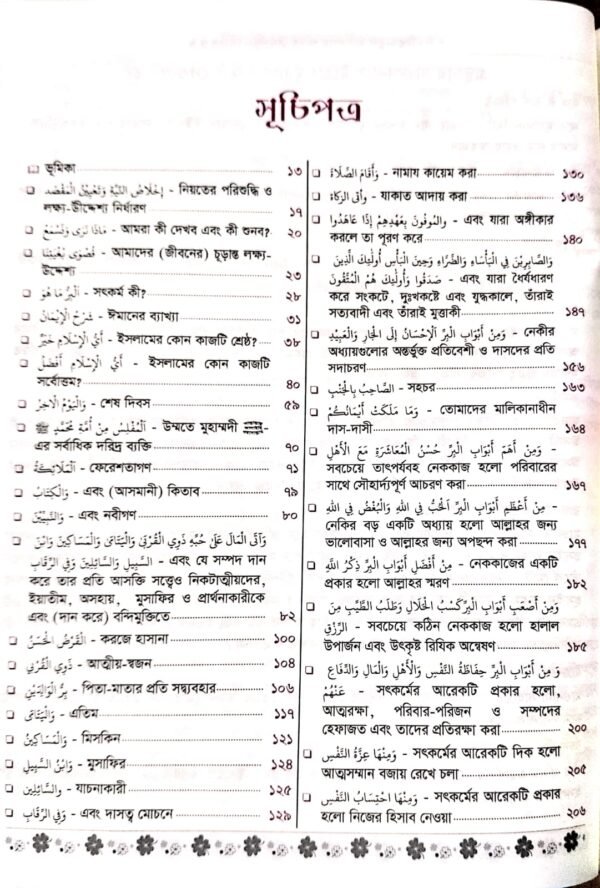 সূচিপত্র
ভূমিকা ১৩
إِخْلَاصُ النِّيَّةِ وَتَعْيِيْنُ الْمَقْصَدِ - নিয়তের পরিশুদ্ধি ও
লক্ষ্য-উদ্দেশ্য নির্ধারণ ১৭
مَاذَا نَرَى وَنَسْمَعُ - আমরা কী দেখব এবং কী শুনব? ২০
আমাদের (জীবনের) চূড়ান্ত লক্ষ্য-
উদ্দেশ্য ২৩
اَلْبِرُّ مَا هُوَ - সৎকর্ম কী? ২৮
شَرْحُ الْإِيْمَانِ - ঈমানের ব্যাখ্যা ৩১
أَيُّ الْإِسْلَامِ خَيْرٌ - ইসলামের কোন কাজটি শ্রেষ্ঠ? ৩৮
أَيُّ الْإِسْلَامِ أَفْضَلُ - ইসলামের কোন কাজটি
সর্বোত্তম? ৪০
وَالْيَوْمِ الْآخِرِ - শেষ দিবস ৫৯
اَلْمُفْلِسُ مِنْ أُمَّةِ مُحَمَّدٍ ﷺ - উম্মতে মুহাম্মদী ﷺ-
এর সর্বাধিক দরিদ্র ব্যক্তি ৭০
اَلْمَلَائِكَةُ - ফেরেশতাগণ ৭১
وَالْكِتَابُ - এবং (আসমানী) কিতাব ৭৯
وَالنَّبِيِّيْنَ - এবং নবীগণ ৮০
وَآتَى الْمَالَ عَلَى حُبِّهِ ذَوِي الْقُرْبَى وَالْيَتَامَى وَالْمَسَاكِيْنَ وَابْنَ
السَّبِيْلِ وَالسَّائِلِيْنَ وَفِي الرِّقَابِ - এবং যে সম্পদ দান
করে তার প্রতি আসক্তি সত্ত্বেও নিকটাত্মীয়দের,
ইয়াতীম, অসহায়, মুসাফির ও প্রার্থনাকারীকে
এবং (দান করে) বন্দিমুক্তিতে ৮২
اَلْقَرْضُ الْحَسَنُ - করজে হাসানা ১০০
ذَوِي الْقُرْبَى - আত্মীয়-স্বজন ১০৪
بِرُّ الْوَالِدَيْنِ - পিতা-মাতার প্রতি সদ্ব্যবহার ১০৬
وَالْيَتَامَى - এতিম ১১৭
وَالْمَسَاكِيْنَ - মিসকিন ১২১
وَابْنُ السَّبِيْلِ - মুসাফির ১২৪
وَالسَّائِلِيْنَ - যাচনাকারী ১২৫
وَفِي الرِّقَابِ - এবং দাসত্ব মোচনে ১২৯
وَأَقَامَ الصَّلَاةَ - নামায কায়েম করা ১৩০
وَآتَى الزَّكَاةَ - যাকাত আদায় করা ১৩৬
وَالْمُوفُونَ بِعَهْدِهِمْ إِذَا عَاهَدُوا - এবং যারা অঙ্গীকার
করলে তা পূরণ করে ১৪০
وَالصَّابِرِيْنَ فِي الْبَأْسَاءِ وَالضَّرَّاءِ وَحِيْنَ الْبَأْسِ أُولَئِكَ الَّذِيْنَ
صَدَقُوا وَأُولَئِكَ هُمُ الْمُتَّقُونَ - এবং যারা ধৈর্যধারণ
করে সংকটে, দুঃখকষ্টে এবং যুদ্ধকালে, তাঁরাই
সত্যবাদী এবং তাঁরাই মুত্তাকী ১৪৭
وَمِنْ أَبْوَابِ الْبِرِّ الْإِحْسَانُ إِلَى الْجَارِ وَالْعَبِيْدِ - নেকীর
অধ্যায়গুলোর অন্তর্ভুক্ত প্রতিবেশী ও দাসদের প্রতি
সদাচরণ ১৫৬
الصَّاحِبُ بِالْجَنْبِ - সহচর ১৬৩
وَمَا مَلَكَتْ أَيْمَانُكُمْ - তোমাদের মালিকানাধীন
দাস-দাসী ১৬৪
وَمِنْ أَهَمِّ أَبْوَابِ الْبِرِّ حُسْنُ الْمُعَاشَرَةِ مَعَ الْأَهْلِ -
সবচেয়ে তাৎপর্যবহ নেককাজ হলো পরিবারের
সাথে সৌহার্দ্যপূর্ণ আচরণ করা ১৬৭
مِنْ أَعْظَمِ أَبْوَابِ الْبِرِّ الْحُبُّ فِي اللهِ وَالْبُغْضُ فِي اللهِ -
নেকির বড় একটি অধ্যায় হলো আল্লাহর জন্য
ভালোবাসা ও আল্লাহর জন্য অপছন্দ করা ১৭৭
مِنْ أَفْضَلِ أَبْوَابِ الْبِرِّ ذِكْرُ اللهِ - নেককাজের একটি
প্রকার হলো আল্লাহর স্মরণ ১৮২
وَمِنْ أَصْعَبِ أَبْوَابِ الْبِرِّ كَسْبُ الْحَلَالِ وَطَلَبُ الطَّيِّبِ مِنَ
الرِّزْقِ - সবচেয়ে কঠিন নেককাজ হলো হালাল
উপার্জন এবং উৎকৃষ্ট রিযিক অন্বেষণ ১৮৫
وَمِنْ أَبْوَابِ الْبِرِّ حِفَاظَةُ النَّفْسِ وَالْأَهْلِ وَالْمَالِ وَالدِّفَاعِ
عَنْهُمْ - সৎকর্মের আরেকটি প্রকার হলো,
আত্মরক্ষা, পরিবার-পরিজন ও সম্পদের
হেফাজত এবং তাদের প্রতিরক্ষা করা ২০০
وَمِنْهَا عِزَّةُ النَّفْسِ - সৎকর্মের আরেকটি দিক হলো
আত্মসম্মান বজায় রেখে চলা ২০৫
وَمِنْهَا احْتِسَابُ النَّفْسِ - সৎকর্মের আরেকটি প্রকার
হলো নিজের হিসাব নেওয়া ২০৬